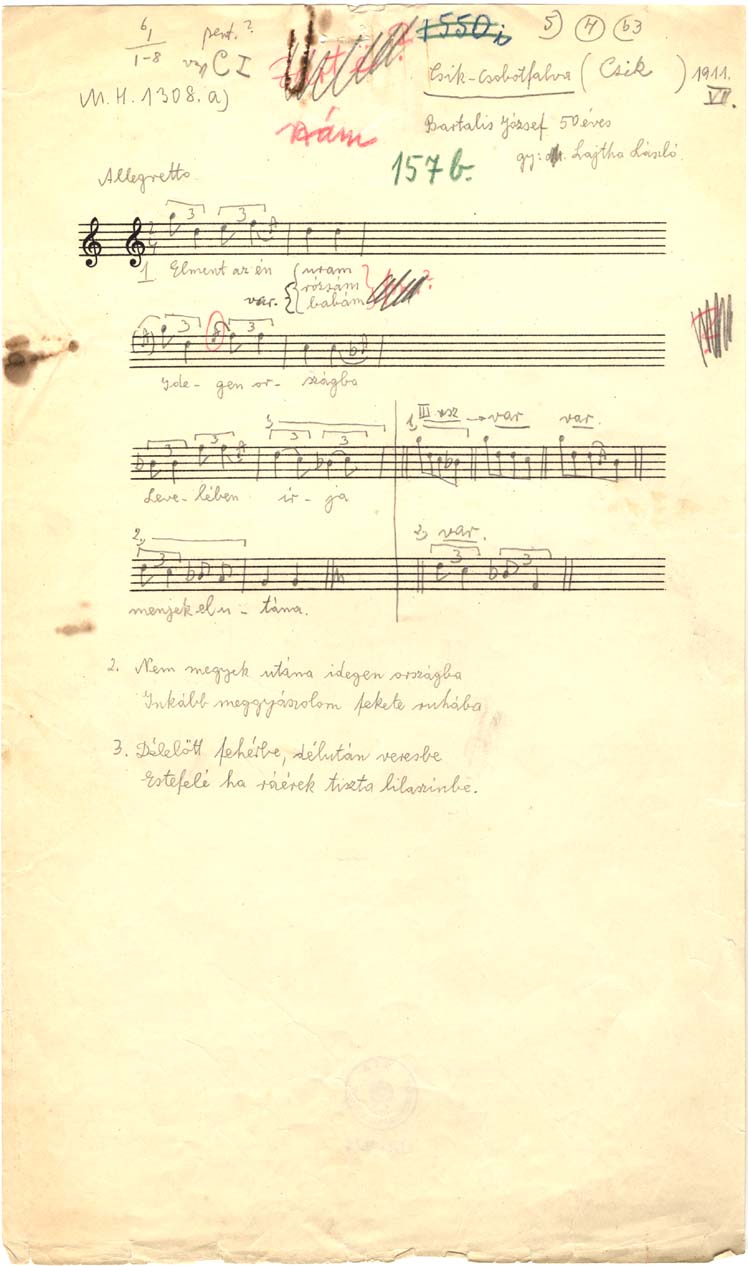 6/1 pent.? 1550 5) 4 b3
1-8 vagy C I
Csik-Csobotfalva (Csik) 1911.
VII.
M.H. 1308.a)
Bartalis József 50 éves
szám
157 b. gy: Lajtha László
Allegretto
2/4 3 3
1 Elment az én uram
rózsám
var. babám
3 3
Ide- gen or- szágba
1, III vsz var var.
3 3 3 3
Leve- lében ir- ja
2, 2, var.
3 3 3
menjek el u- tána.
2. Nem megyek utána idegen országba
Inkább meggyászolom fekete ruhába
3. Délelőtt fehérbe, délután veresbe
Estefelé ha ráérek tiszta lilaszínbe.